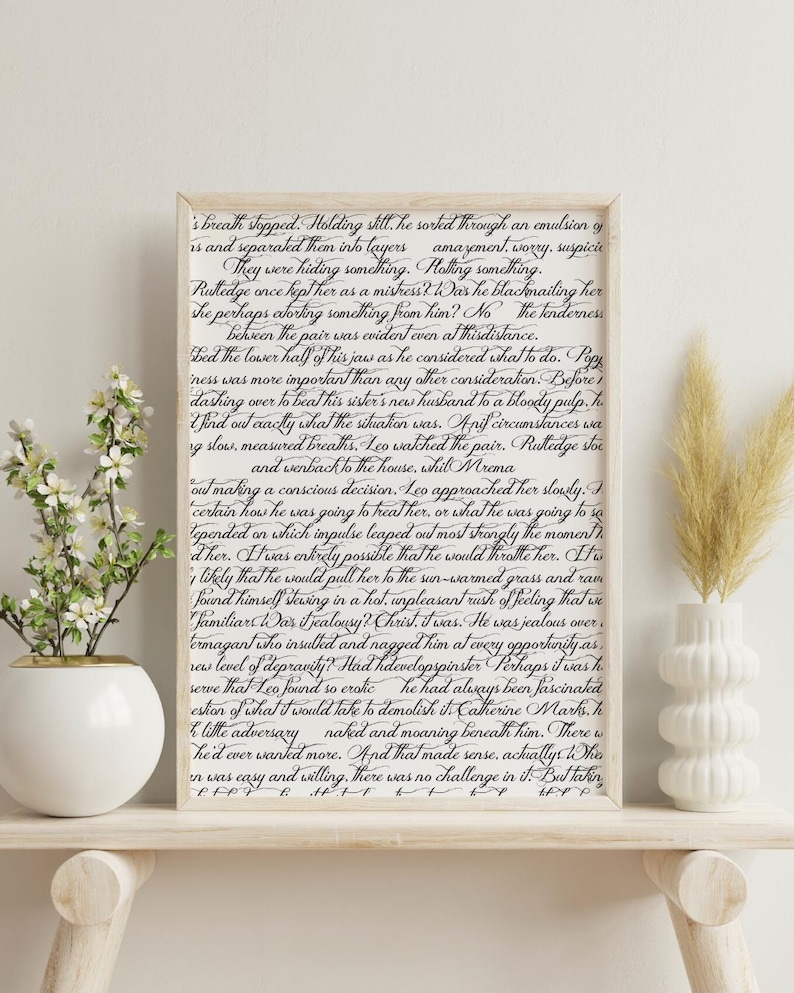 's breath stopped. Holding still, he sorted through an emulsion of
ns and separated them into layers amazement, worry, suspicio
They were hiding something. Plotting something.
Rutledge once kept her as a mistress? Was he blackmailing her
she perhaps extorting something from him? No the tenderness
between the pair was evident even at thisdistance.
bbed the lower half of his jaw as he considered what to do. Popp
iness was more important than any other consideration. Before
dashing over to beat his sister's new husband to a bloody pulp, h
d find out exactly what the situation was. Anif circumstances wa
ng slow, measured breaths, Leo watched the pair. Rutledge stoo
and wenback to the house, whil Mrema
out making a conscious decision, Leo approached her slowly. H
certain how he was going to treat her, or what he was going to sa
depended on which impulse leaped out most strongly the moment h
d her. It was entirely possible that he would throttle her. It w
y likely that he would pull her to the sun-warmed grass and rav
found himself stewing in a hot, unpleasant rush of feeling that wa
familiar. Was it jealousy? Christ, it was. He was jealous over
ermagant who insulted and nagged him at every opportunity.as
new level of depravity? Had hdevelopspinster Perhaps it was h
serve that Leo found so erotic he had always been fascinated
estion of what it would take to demolish it. Catherine Marks, h
h little adversary naked and moaning beneath him. There w
he'd ever wanted more. And that made sense, actually. When
n was easy and willing, there was no challenge in it. But taking